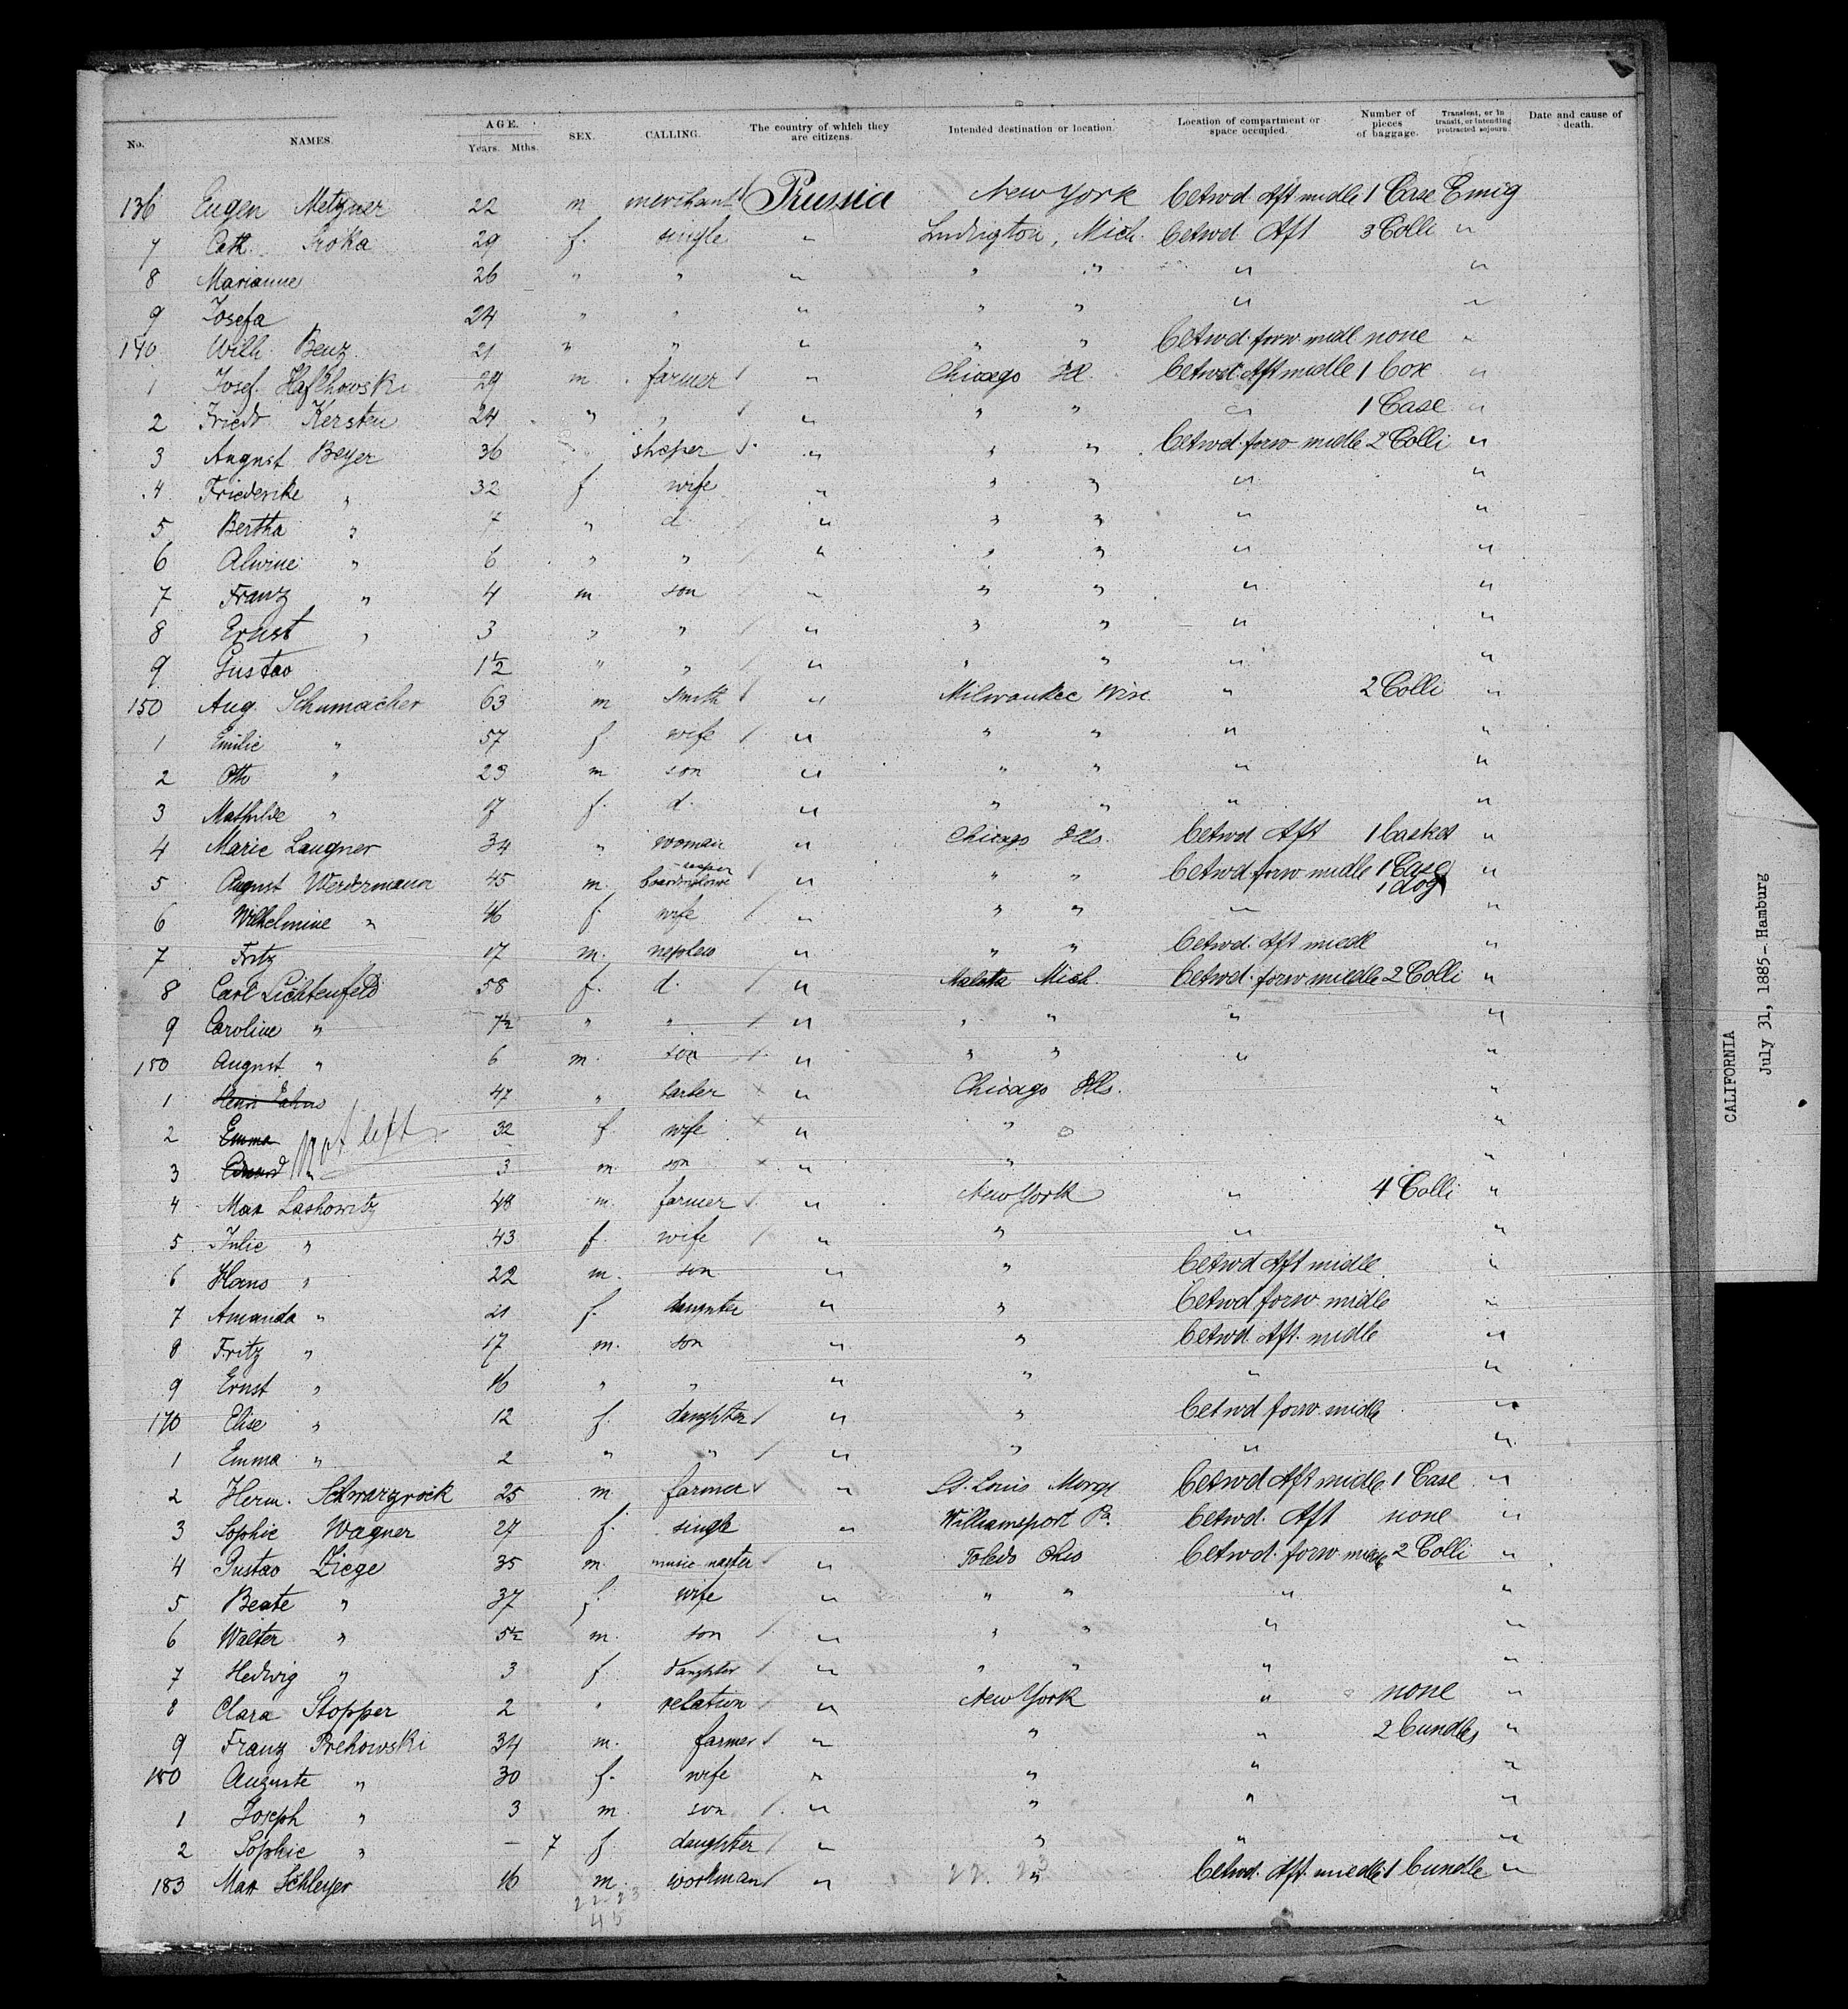 No. NAMES. AGE. Years. Mths. SEX. CALLING. The country of which they are citizens. Intended destination or location. Location of compartment or space occupied. Number of pieces of baggage. Transient, or in transit, or intending protracted sojourn. Date and cause of death.
136 Eugen Metzner 22 m merchant Prussia New York betwd Aft midle 1 Case Emig
7 Cath. Sroka 29 f. single " Ludington, Mich. betwd Aft 3 Colli "
8 Marianne 26 " " " " " " "
9 Josefa 24 " " " " " " "
140 Wilh. Benz 21 " " " " " betwd. forw. midl none "
1 Josef 29 m. farmer " Chicago Ill. betwd. Aft midle 1 box "
2 Friedr Kersten 24 " " " " " " 1 Case "
3 August Beyer 36 " " " " betwd. forw midle 2 Colli "
4 Friederike " 32 f wife " " " " "
5 Bertha " 7 " d " " " " "
6 Alwine " 6 " " " " " " "
7 Franz " 4 m son " " " " "
8 Ernst " 3 " " " " " " "
9 Gustav 1½ " " " " " " "
150 Aug. Schumacher 63 m smith " Milwaukee Wisc. " 2 Colli "
1 Emilie " 57 f wife " " " " "
2 Otto " 23 m son " " " " "
3 Mathilde " 17 f. d. " " " " "
4 Marie Laugner 34 " woman " Chicago Ills. betwd Aft 1 basket "
5 August Werdermann 45 m. keeper " " " betwd. forw midle 1 Case "
1 dog
6 Wilhelmine " 46 f. wife " " " " "
7 Fritz 17 m. nephew " " " betwd. Aft midl "
8 Carl Lichtenfeld 58 f. d. " Mich. betwd. forw midle 2 Colli "
9 Caroline " 7½ " " " " " " "
150 August " 6 m. son " " " " "
1 47 " barber " Chicago Ills. "
2 Emma not left 32 f wife " " "
3 Eduard " 3 m. son " " "
4 Max Laskowitz 48 m. farmer " New York " 4 Colli "
5 Julie " 43 f. wife " " " "
6 Hans " 22 m. son " " betwd Aft midle "
7 Amanda " 21 f. daughter " " betwd forw. midle "
8 Fritz " 17 m. son " " betwd. Aft. midle "
9 Ernst " 16 " " " " " "
170 Elise " 12 f. daughter " " betwd forw. midle "
1 Emma " 2 " " " " " "
2 Herm. Schwarzrock 25 m farmer " St. Louis betwd Aft midle 1 Case "
3 Sophie Wagner 27 f. single " Williamsport Pa. betwd. Aft none "
4 Gustav Ziege 35 m. music master " Toledo Ohio betwd. forw midle 2 Colli "
5 Beate " 37 f. wife " " " " "
6 Walter " 5½ m. son " " " " "
7 Hedwig " 3 f daughter " " " " "
8 Clara Stopper 2 " relation " New York " none "
9 Franz Prehowski 34 m. farmer " " " 2 bundles "
180 Auguste " 30 f. wife " " " "
1 Joseph " 3 m. son " " " "
2 Sophie " – 7 f daughter " " " "
183 Max Schleyer 16 m. workman " " betwd. Aft. midle 1 bundle "
22 23
22 23
45
CALIFORNIA
July 31, 1885 - Hamburg